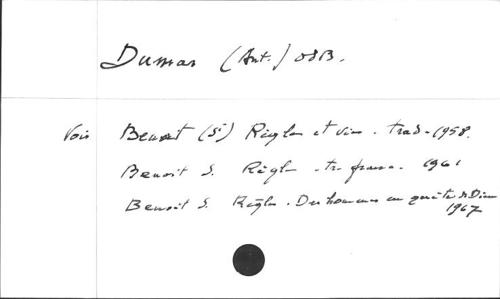 Dumas (Ant.) OSB.
Voir Benoit (St) Règle et vie. trad. 1958.
Benoit S. Règle. tr. franç. 1961
Benoit S. Règle. Des hommes en quête de Dieu
1967